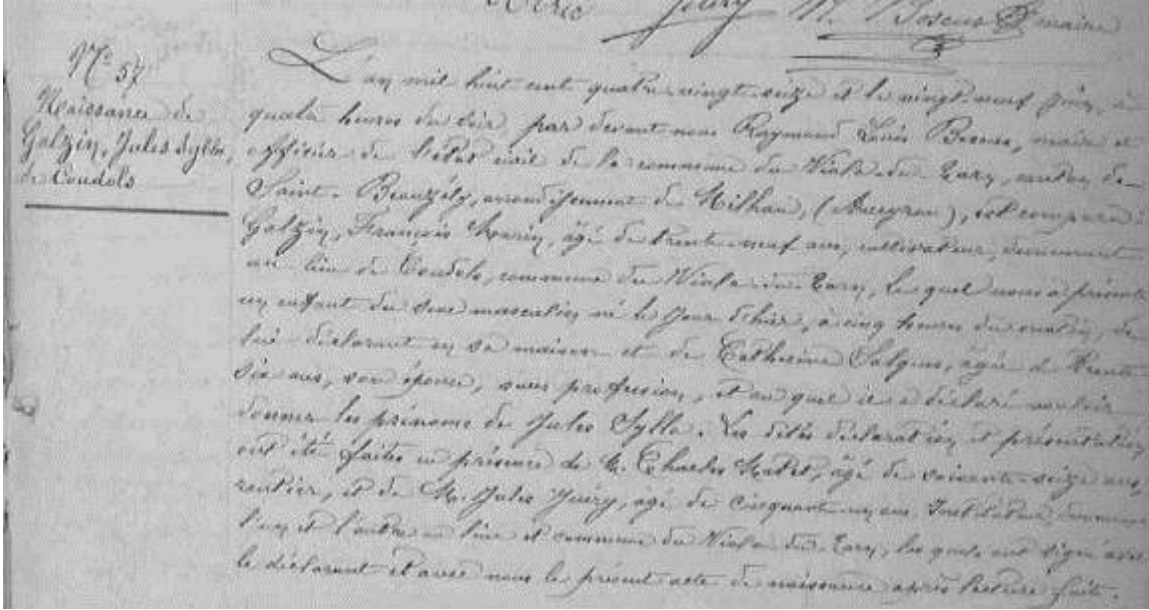 Juéry
maire
N° 57
Naissance de
Galzin, Jules Sylla,
de Coudols
L'an mil huit cent quatre-vingt-seize et le vingt-neuf Juin, à
quatre heures du soir, par devant nous Raymond Louis Boscus, maire et
officier de l'état civil de la commune du Viala-du-Tarn, canton de
Saint-Beauzély, arrondissement de Milhau, (Aveyron), est comparu:
Galzin, François Marin, âgé de trente-neuf ans, cultivateur, demeurant
au lieu de Coudols, commune du Viala-du-Tarn, le quel nous a présenté
un enfant du sexe masculin né le jour d'hier, à cinq heures du matin, de
lui déclarant en sa maison et de Catherine Salgues, âgée de trente
six ans, son épouse, sans profession, et au quel il a déclaré vouloir
donner les prénoms de Jules Sylla. Les dites déclaration et présentation
ont été faites en présence de M. Charles âgé de soixante-seize ans,
rentier, et de M. Jules Juéry, âgé de cinquante-un ans, Instituteur,
l'un et l'autre au lieu et commune du Viala-du-Tarn, les quels ont signé avec
le déclarant et avec nous le présent acte de naissance après lecture faite.